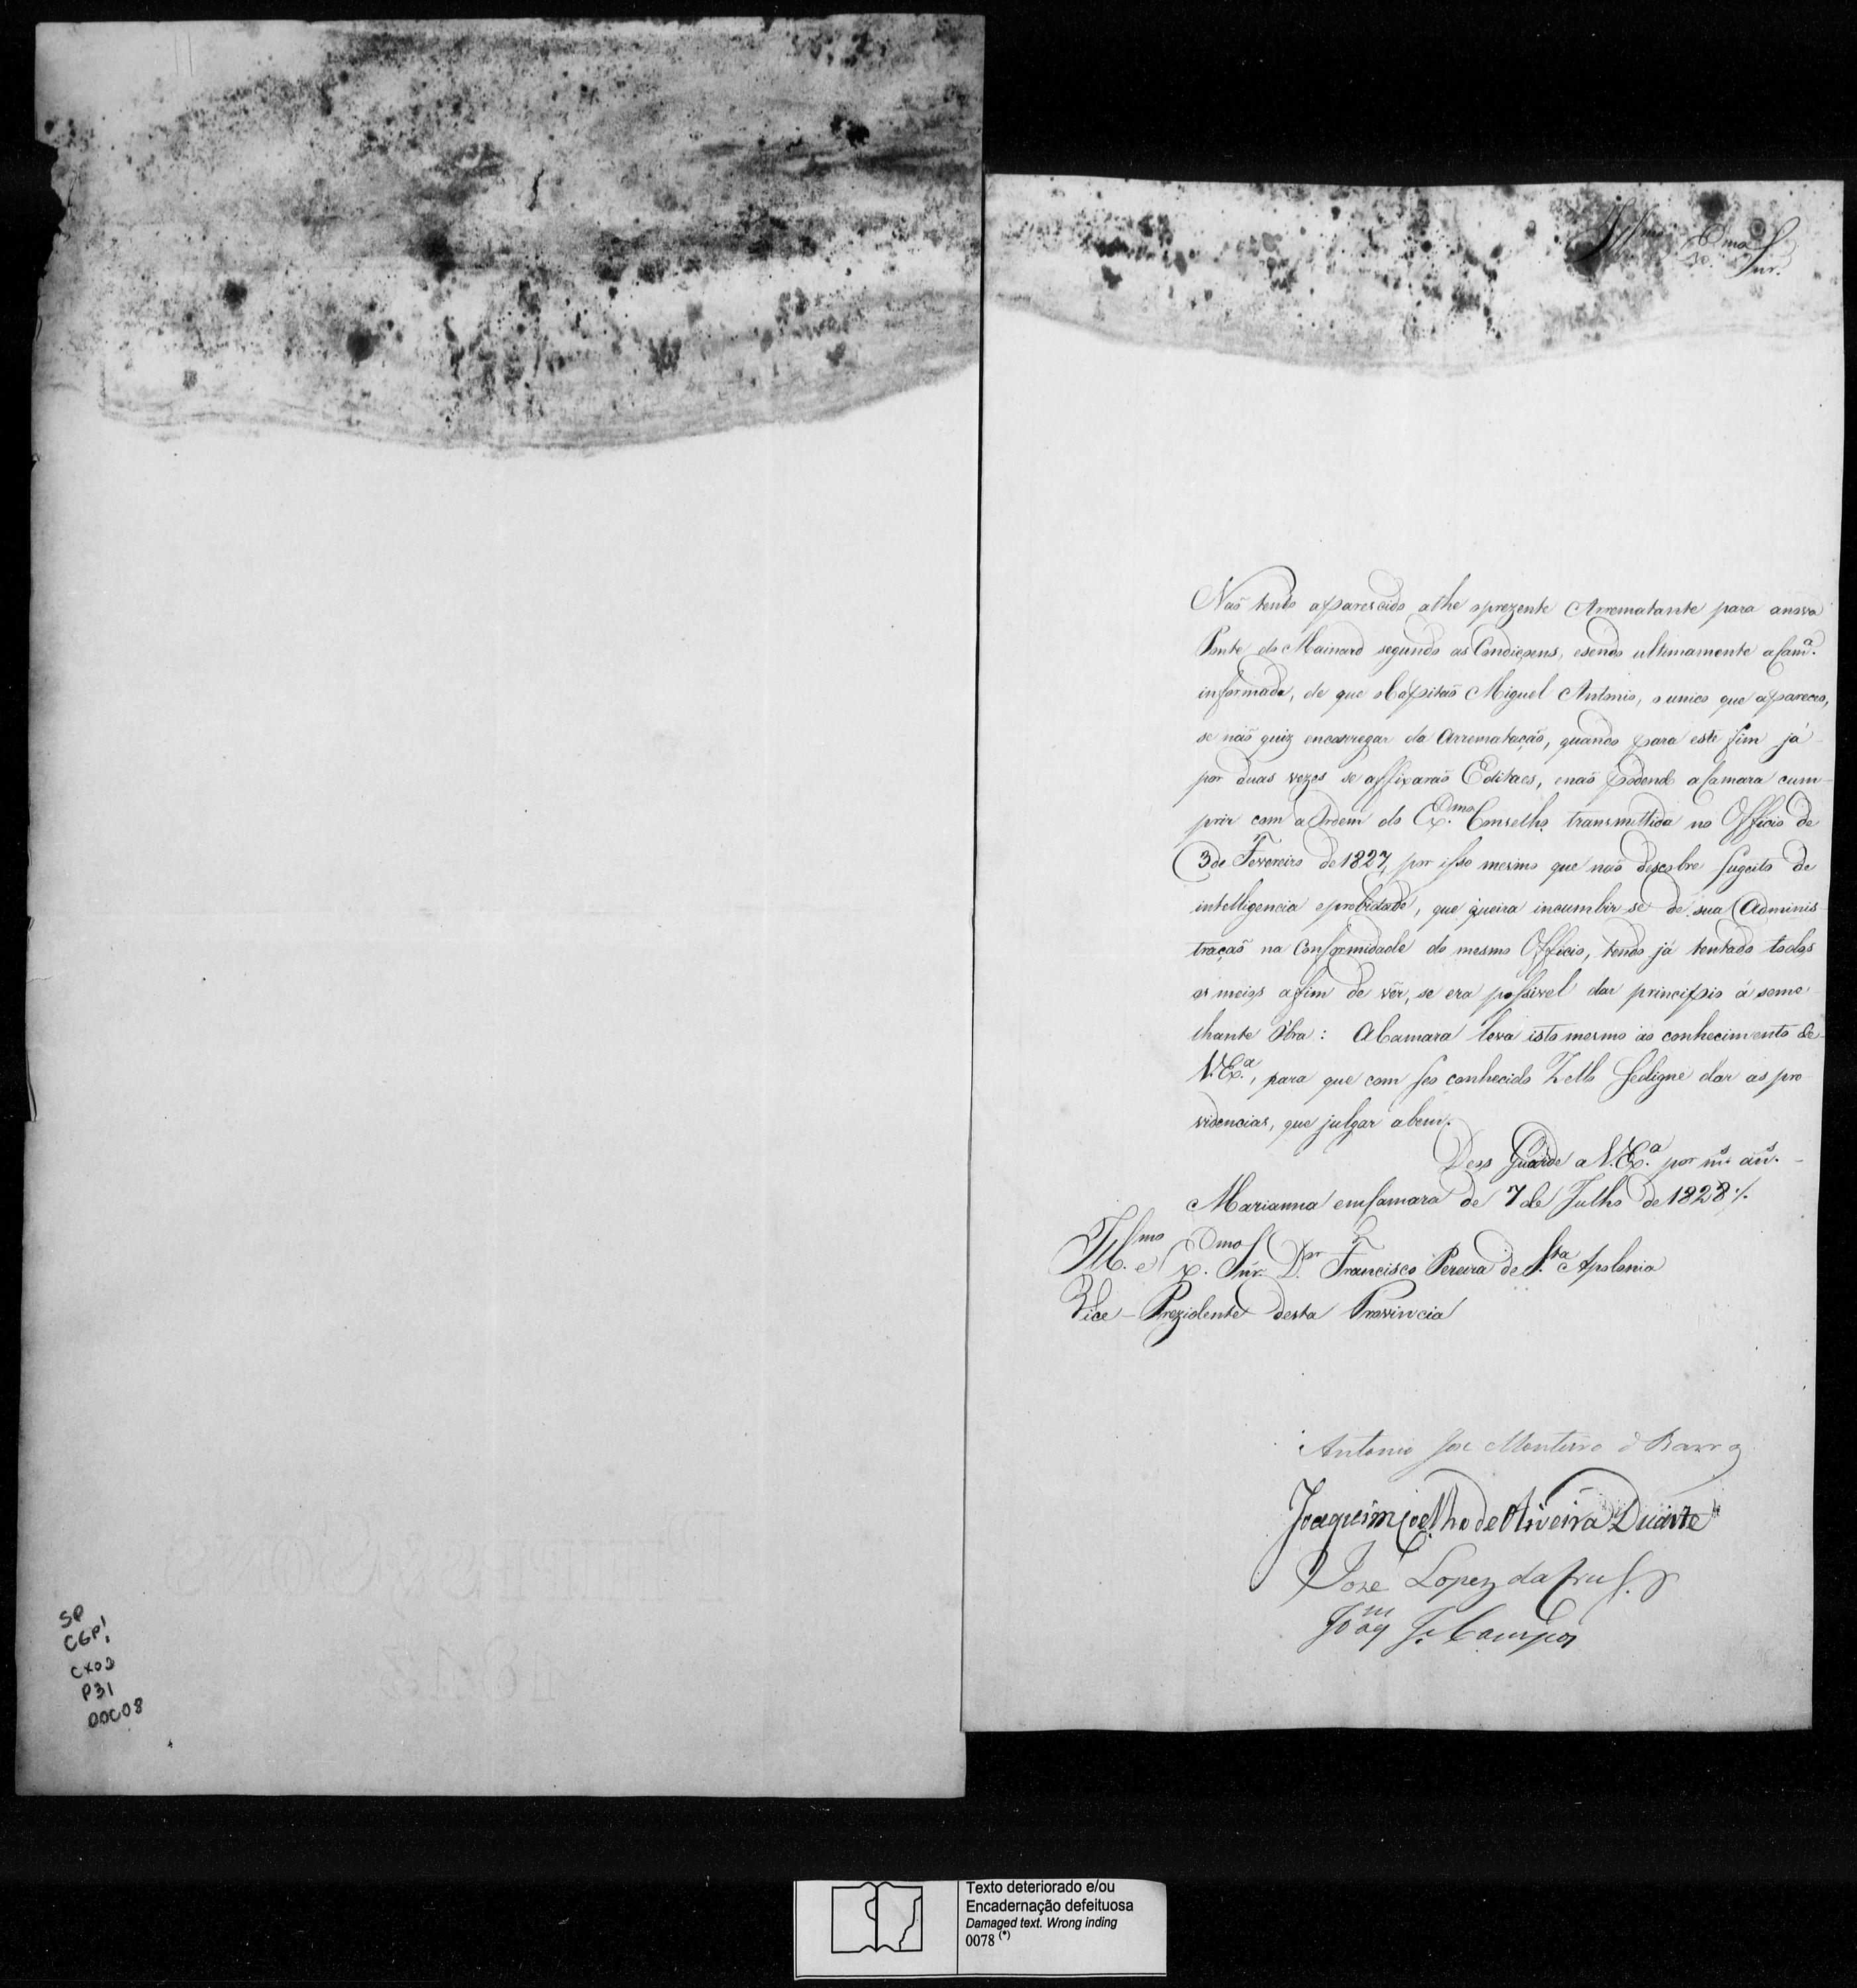 SP
CGP1
CX02
P31
DOC08
Ill.mo Ex.mo Snr.
Naõ tendo apparescido athe oprezente Arrematante para anova
Ponte do Mainard segundo as Condiçoens, esendo ultimamente aCam.ª
informada, de que oCapitaõ Miguel Antonio, o unico que apareceo,
se naõ quiz encarregar da Arremataçaõ, quando para este fim já
por duas vezes se affixaraõ Editaes, enaõ podendo aCamara cum-
prir com a Ordem do Ex.mo Conselho transmittida no Officio de
3 de Fevereiro de 1827, por isso mesmo que naõ descobre Sugeito de
intelligencia eprobidade, que queira incumbir-se de sua Adminis-
traçaõ na Conformidade do mesmo Officio, tendo já tentado todos
os meios afim de vêr, se era possivel dar principio á seme-
lhante Obra: ACamara leva isto mesmo ao conhecimento de
V.Ex.ª, para que com seo conhecido Zello Sedigne dar as pro-
videncias, que julgar abem.
Deos Guarde a V.Ex.ª por m.s an.s
Marianna emCamara de 7 de Julho de 1828 ·/.
Ill.mo e Ex.mo Snr. D.or Francisco Pereira de S.ta Apolonia
Vice-Prezidente desta Provincia
Antonio Jose Monteiro d Barros
Joaquim Coelho de Oliveira Duarte
Jose Lopez da Cruz
Joaq.m Je. Campos
Texto deteriorado e/ou
Encadernação defeituosa
Damaged text. Wrong inding
0078 (*)